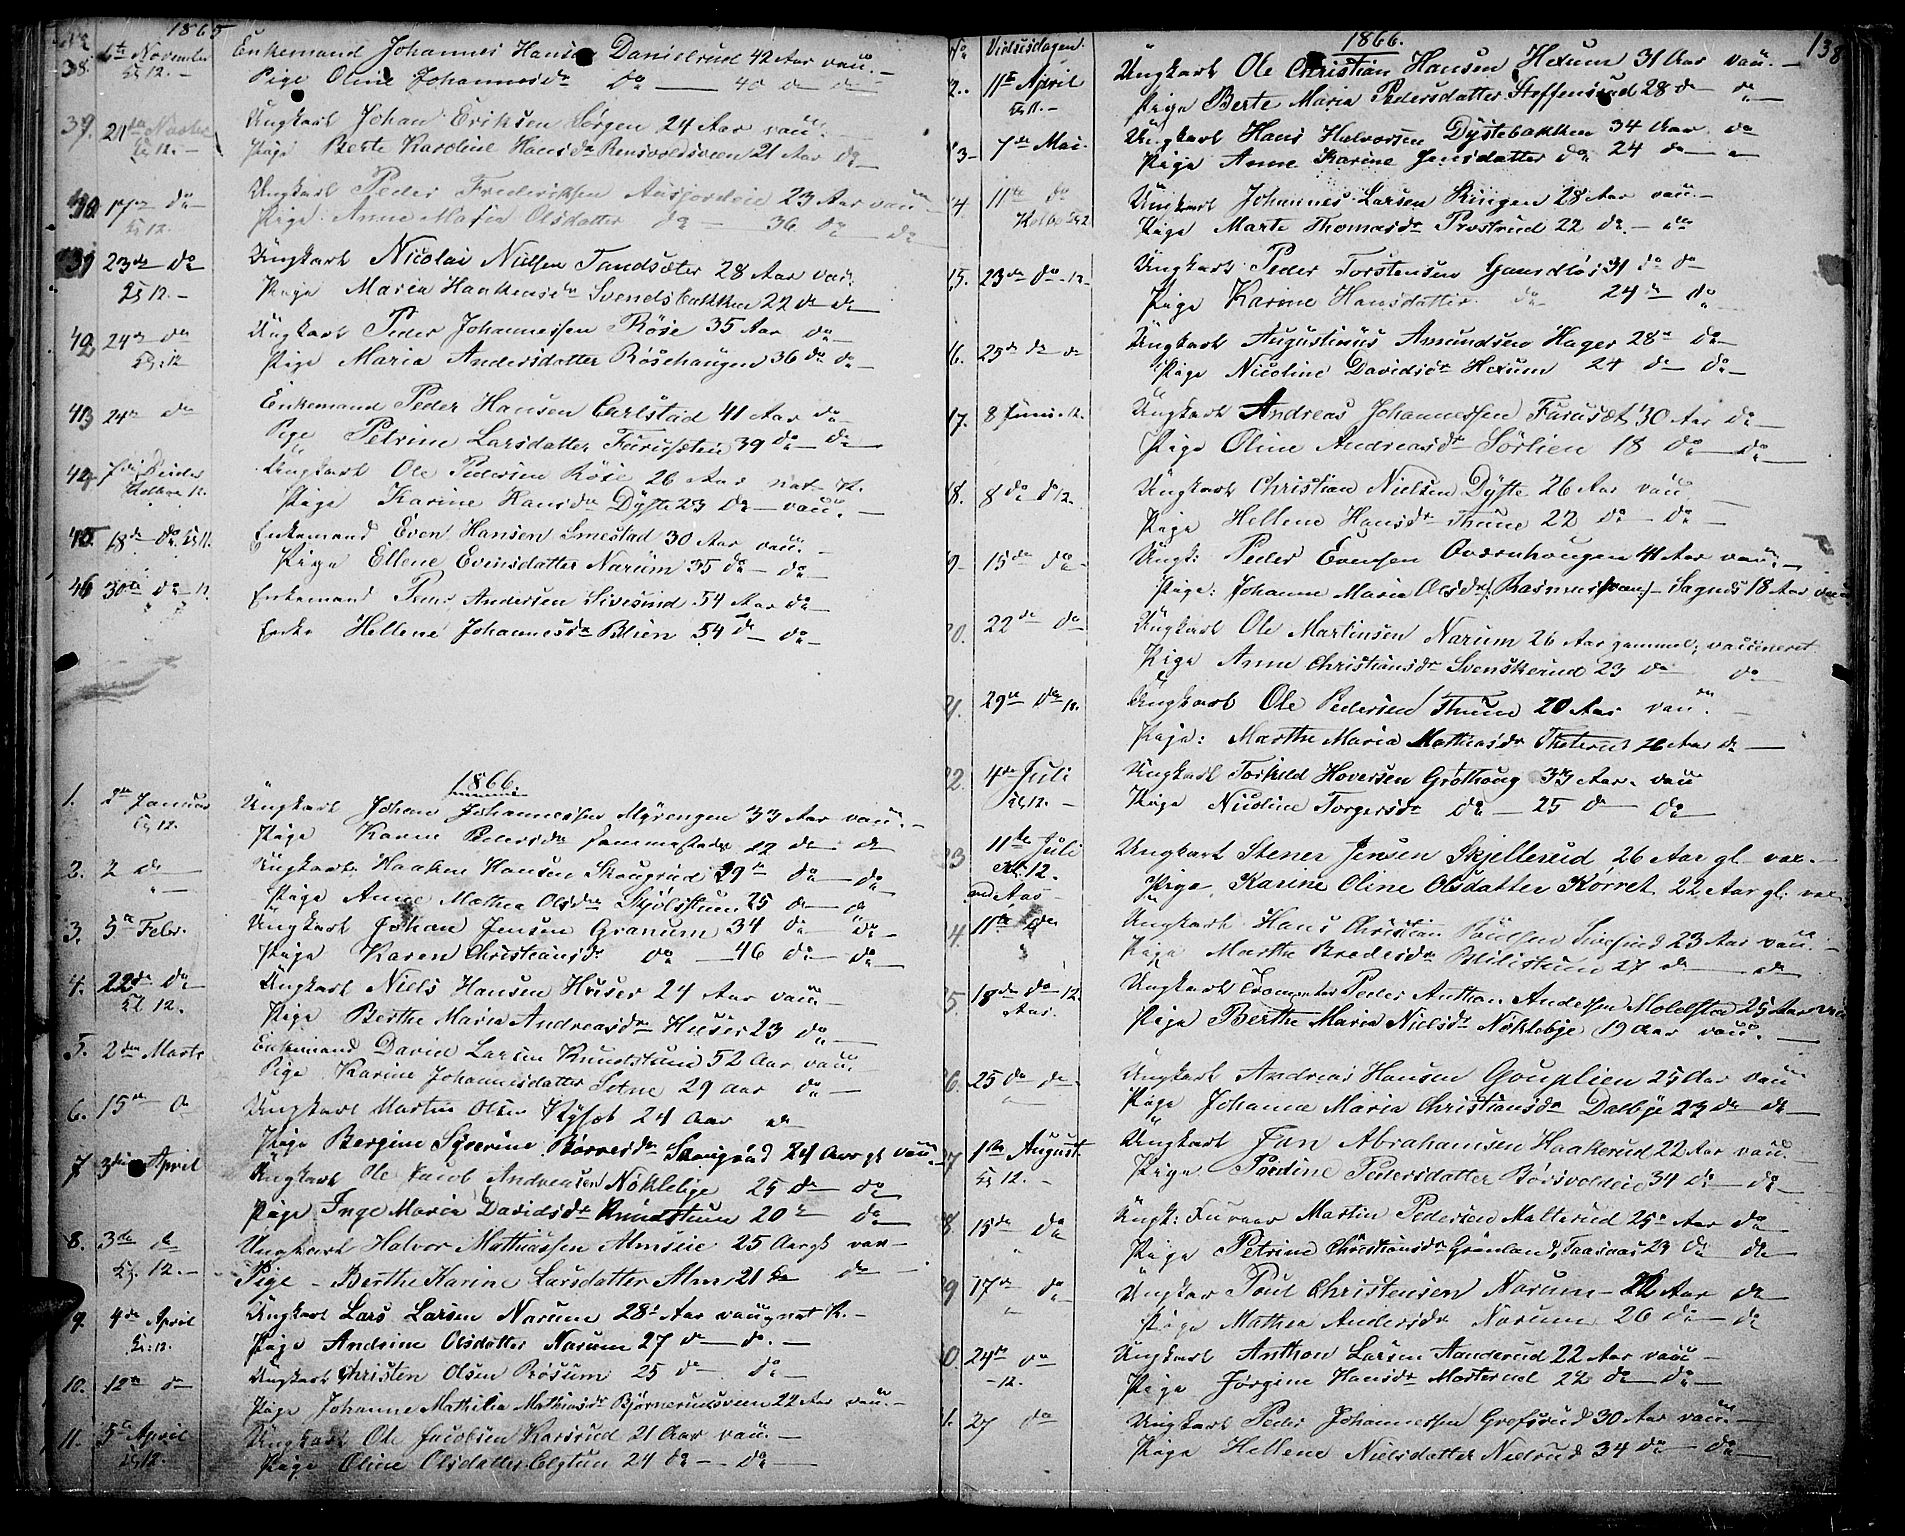 1865
No
38. 6te November Enkemand Johannes Hansen Danielsrud 42 Aar vacc. —
Kl 12. — Pige Oline Johannesdr do — 40 do do
39. 21de Novbr Ungkarl Johan Eriksen Sørgen 24 Aar vacc. —
Kl 12. — Pige Berte Karoline Hansdr Rensvoldsveen 21 Aar do
40 17de do — Ungkarl Peder Frederiksen Aasjordeie 23 Aar vacc —
Kl 12. Pige Anne Maria Olsdatter do — 36 do — do
23de do Ungkarl Nicolai Nielsen Tandsæter 28 Aar vac:
Kl 12. — Pige Maria Haakensdr Svendsbakken 22 do do
42 24de do Ungkarl Peder Johannessen Røise 35 Aar do —
Kl. 12 Pige Maria Andersdatter Røisehaugen 36 do do —
43 24de do Enkemand Peder Hansen Carlstad 41 Aar do
Pige Petrine Larsdatter Furusæteie 39 do — do
44 Ungkarl Ole Pedersen Røise 26 Aar nat. K.
Kolbu 12. Pige Karine Hansdr Dyste 23 do — vacc. —
45. 18de do. Kl 11. Enkemand Even Hansen Smestad 30 Aar vacc. —
Pige Ellene Evensdatter Narum 35 do — do —
46 30te do — 12. Enkemand Peder Andersen Sivesind 54 Aar do —
Enke Hellene Johannesdr Blien 54 do do —
1866.
1. 2de Januar Ungkarl Johan Johannessen Myrengen 33 Aar vacc. —
Kl 12. Pige Karen Pedersdr sammesteds 22 do do
2. 2 do Ungkarl Haaken Hansen Skougrud 29 do do
Pige Anne Mathea Olsdr Skjølstuen 25 do do
3. 5te Febr. Ungkarl Johan Jensen Granum 34 do do —
Pige Karen Christiansdr do — 46 do — do —
4. 22de do Ungkarl Niels Hansen Huser 24 Aar vacc —
Kl 12. Pige Berthe Maria Andreasdr Huser 23 do —
5. 2den Marts Enkemand David Larsen Knudstuen 52 Aar vacc.
Pige Karine Johannesdatter Sotne 29 aar do —
6. 15de do Ungkarl Martin Olsen Kyset 24 Aar do
Pige Bergine Syverine Børresdr Skougrud 24 Aar gl vacc.
7 3die April Ungkarl Ole Jacob Andreasen Nøklebye 25 do do
Pige Inge Maria Davidsdr Knudstuen 20 do do
8. 3die do Ungkarl Halvor Mathiassen Almseie 25 Aar gl vac —
Kl. 12. — Pige — Berthe Karine Larsdatter Alm 21 do do —
9. 4de April Ungkarl Lars Larsen Narum 28 Aar vacc. nat K. —
Kl: 12. Pige Andrine Olsdatter Narum 27 do — do. —
10. 12te do Ungkarl Christen Olsen Røsum 25 do do —
Pige Johanne Mathilia Mathiasdr Bjørnerudsveen 22 Aar vacc. —
11. 5te April Ungkarl Ole Jacobsen Karsrud 21 Aar vacc. —
Kl 12. — Pige Oline Olsdatter Elgtun 24 do — do —
138
No Vielsesdagen. 1866.
2. 11te April Ungkarl Ole Christian Hansen Hexum 31 Aar vacc. —
Kl 11. — Pige Berte Maria Pedersdatter Steffensrud 28 do do
3 — 7de Mai. Ungkarl Hans Halvorsen Dystebakken 34 Aar do
Pige Anne Karine Jensdatter do 24 do —
4 11te do Ungkarl Johannes Larsen Ringen 28 Aar vacc —
Kolbu Kl 2 Pige Marte Thomasdr Prestrud 22 do. — do
15. 23de do — 12 — Ungkarl Peder Torstensen Gaardløs 31 do do
Pige Karine Hansdatter do — 24 do do
6. 25de do do Ungkarl Augustinus Amundsen Hager 28 do —
Pige Nicoline Davidsdr Hexum 24 do — do —
17. 8 Juni. 12. Ungkarl Andreas Johannessen Furuset 30 Aar do —
Pige Oline Andreasdr Sørlien 18 do — do —
18. 8 do do 12. Ungkarl Christian Nielsen Dyste 26 Aar vacc
Pige Hellene Hansdr Thune 22 do — do —
9 — 15de do — Ungk: Peder Evensen Oversnhougen 41 Aar vacc. —
Pige: Johanne Maria Olsdr (Rasmussveen) — Sagnes 18 Aar vacc
20. 22de do Ungkarl Ole Martinsen Narum 26 Aar gammel, vaccineret
Pige Anne Christiansdr Svenskerud 23 do do
21. 29de do 12. Ungkarl Ole Pedersen Thune 20 Aar vacc. —
Pige: Marthe Maria Mathiasdr Theterud 26 Aar do —
22. 4de Juli Ungkarl Torkild Hoversen Grøthoug 33 Aar. vacc
Kl 12. — Pige Nicoline Torgersdr do — 25 do — do
23 11te Juli Ungkarl Stener Jensen Skjellerud 26 Aar gl. vac. —
Kl. 12. Pige Karine Oline Olsdatter Kørret 22 Aar gl. vac.
ved Aas —
4. 11te do Ungkarl Hans Christian Poulsen Sivesind 23 Aar vacc. —
Pige Marthe Bredesdr Blilistuen 27 do — do
5. 18de do 12. Ungkarl Peder Anthon Andersen Molelsta 25 Aar vac
Aas. Pige Berthe Maria Nielsdr Nøklebye 19 Aar vacc. —
6. 25 do do — Ungkarl Andreas Hansen Gouplien 25 Aar vacc
Pige Johanne Maria Christiansdr Dalbye 23 do do —
27 1ste August Ungkarl Jan Abrahamsen Haakerud 22 Aar vacc. —
Kl 12. — Pige Pordine Pedersdatter Børsvoldeie 34 do — do —
8 15de do Ungk: Furaar Martin Pedersen Malterud 25 Aar do
Pige Petrine Christiansdr Grønland, Taasaas 23 do do —
9 17de do Ungkar Poul Christensen Narum — 22 Aar do
Pige Mathea Andersdr Narum 26 do — do
0. 24de do Ungkarl Anthon Larsen Aanderud 22 Aar vacc —
— 12. Pige Jørgine Hansdr Masterud 22 do do —
1. 27 do Ungkarl Peder Johannessen Grefsrud 30 Aar vacc. —
Pige Hellene Nielsdatter Nielsrud 34 do — do —